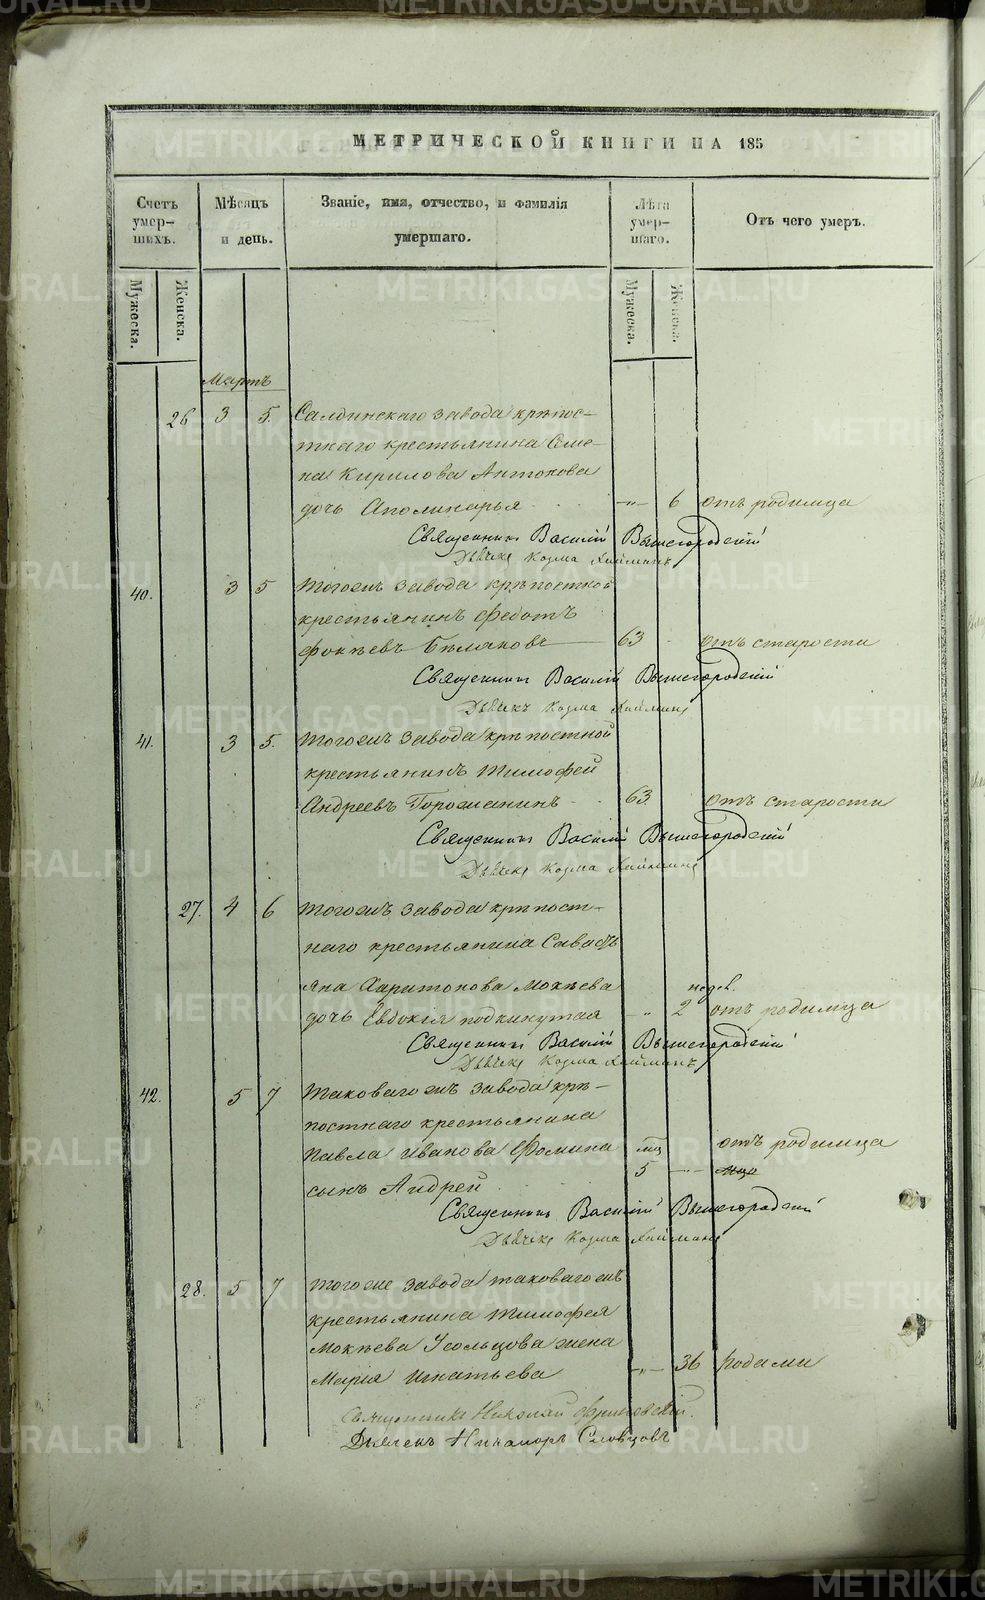 МЕТРИЧЕСКОЙ КНИГИ НА 185
Счетъ умер-шихъ.
Мѣсяцъ и день.
Званіе, имя, отчество, и фамилія умершаго.
Лѣта умер-шаго.
Отъ чего умеръ.
Мужеска.
Женска.
Мужеска.
Женска.
Мартъ
26 3 5. Салдинскаго завода крѣпос-
тнаго крестьянина Семе-
на Кирилова Антонова
дочь Аполинарья - „ - 6 отъ родимца
Священникъ Василій Вышегородскій
Дьячекъ Козма
40. 3 5 Тогожъ завода крѣпостной
крестьянинъ Федотъ
Фокѣевъ Бѣляковъ 63 отъ старости
Священникъ Василій Вышегородскій
Дьячекъ Козма
41. 3 5. Тогожъ завода крѣпостной
крестьянинъ Тимофей
Андреевъ Горожанинъ 63 отъ старости
Священникъ Василій Вышегородскій
Дьячекъ Козма
27. 4 6 Тогожъ завода крѣпост-
наго крестьянина Савась
яна Харитонова Мокѣева недѣ.
дочь Евдокія подкинутая - „ 2 отъ родимца
Священникъ Василій Вышегородскій
Дьячекъ Козма
42. 5 7 Таковагожъ завода крѣ-
постнаго крестьянина
Павла Иванова Фомина мц отъ родимца
сынъ Андрей 5
Священникъ Василій Вышегородскій
Дьячекъ Козма
28. 5 7 Тогоже завода таковагожъ
крестьянина Тимофея
Мокѣева Усольцова жена
Марія Игнатьева - „ - 36 родами
Священникъ Николай
Дьячекъ Никаноръ Словцовъ
METRIKI.GASO-URAL.RU